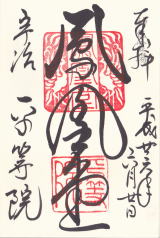 奉拝
平成廿六年
六月廿日
鳳凰堂
宇治
平等院